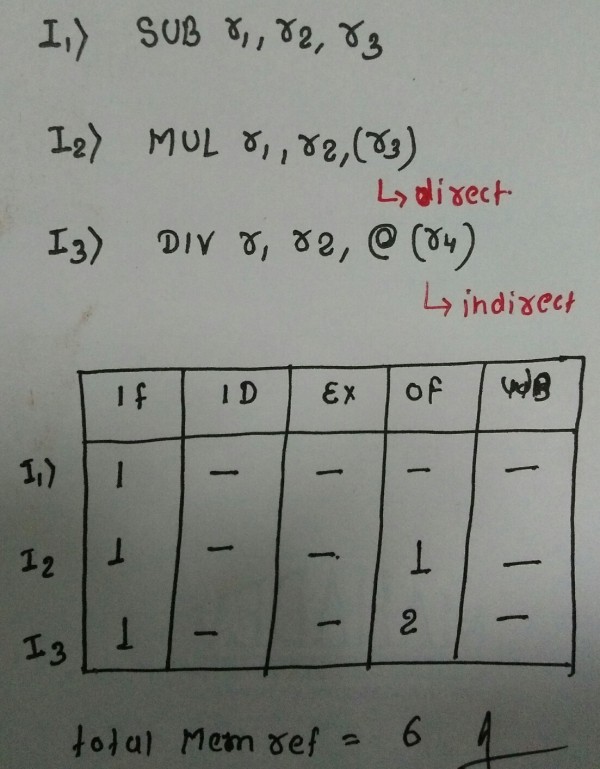 I₁) SUB r₁, r₂, r₃
I₂) MUL r₁, r₂, (r₃)
↳ direct
I₃) DIV r₁ r₂, @ (r₄)
↳ indirect
If ID Ex OF WB
I₁) 1 — — — —
I₂ 1 — — 1 —
I₃ 1 — — 2 —
total Mem ref = 6